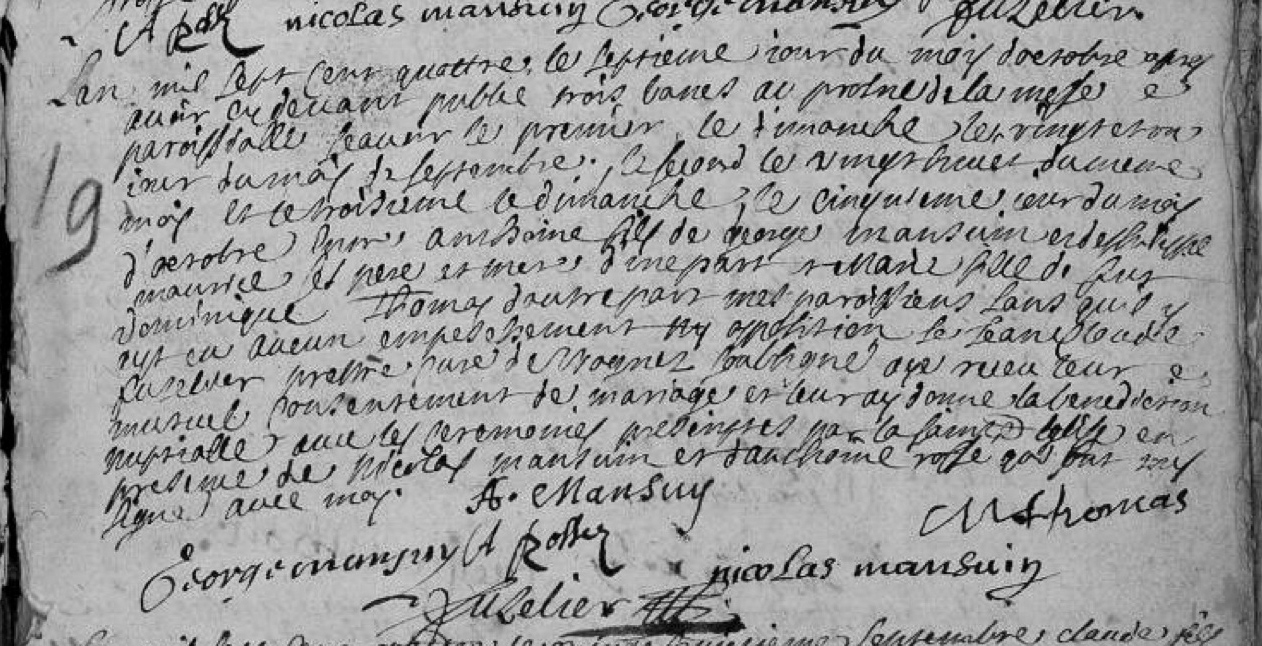 A Rosse nicolas mansuiy George mansuy Fuzelier
Lan mil sept cent quattre le septieme iour du mois doctobre apres
avoir cy devant publié trois bancs au prosne de la messe
paroissialle scavoir le premier le dimanche le vingt et un
iour du mois de septembre, le second le vingt huict du meme
mois et le troisieme le dimanche le cinquieme iour du mois
d'octobre entre anthoine fils de george mansuin et de
maurice ses pere et mere d'une part et Marie fille de fut
Dominique Thomas d'autre part mes paroissiens sans qu'il y
ayt eu aucun empeschement ny opposition ie Jean Claude
fuzelier prestre curé de soubsigné aye receu leur
mutuel consentement de mariage et leur ay donné la benediction
nuptialle avec les ceremonies prescriptes par la sainte Eglise en
presence de Nicolas mansuin et d'anthoine rosse qui ont tous
signé avec moy. A. Mansuy
M thomas
George mansuy A Rosse
nicolas mansuiy
Fuzelier
septembre claude fils